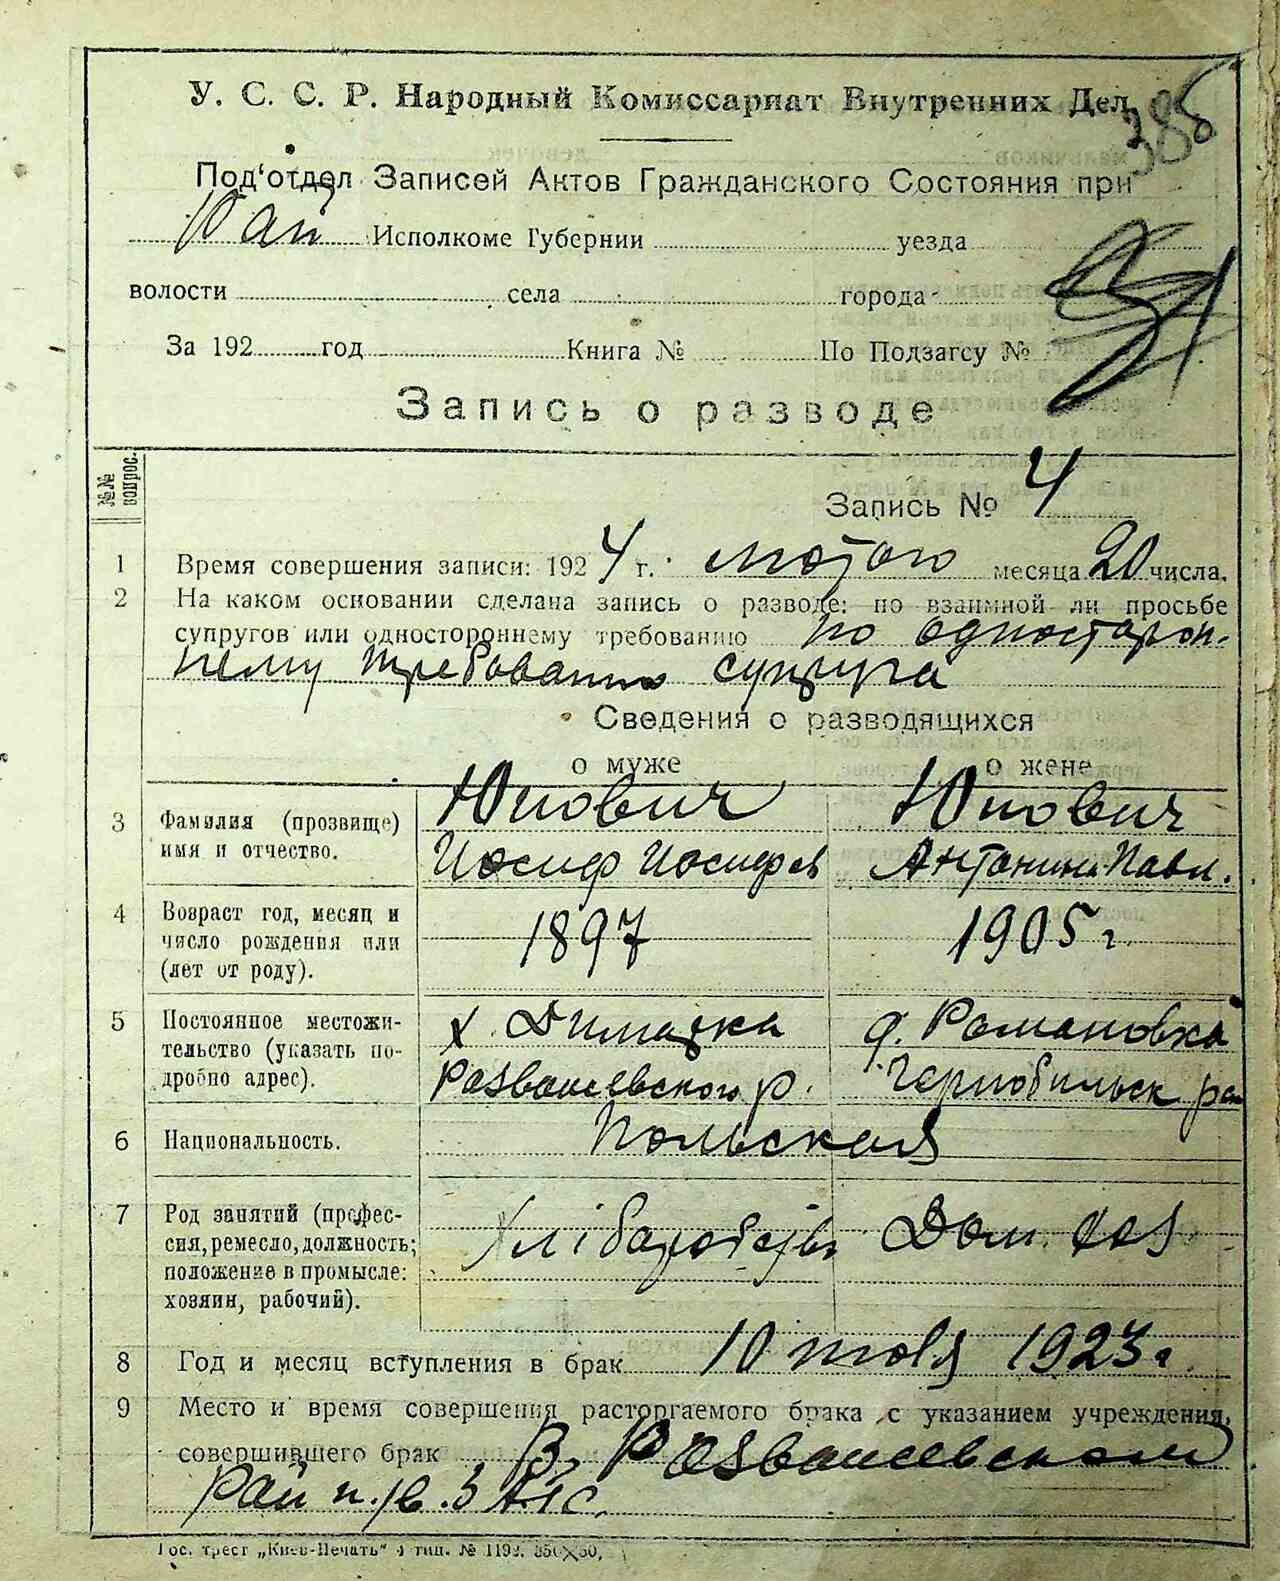 У. С. С. Р. Народный Комиссариат Внутренних Дел
388
Под'отдел Записей Актов Гражданского Состояния при
Рай Исполкоме Губернии уезда
волости села города
За 192 год Книга № По Подзагсу №
Запись о разводе
№№ вопрос.
Запись № 4
1 Время совершения записи: 1924 г. лютого месяца 20 числа.
2 На каком основании сделана запись о разводе: по взаимной ли просьбе
супругов или одностороннему требованию по односторон-
нему требованию супруга
Сведения о разводящихся
о муже о жене
3 Фамилия (прозвище) Юнович Юнович
имя и отчество. Иосиф Иосифов Антонина Павл.
4 Возраст год, месяц и
число рождения или 1897 1905 г.
(лет от роду).
5 Постоянное местожи- х. Димарка д. Романовка
тельство (указать по-
дробно адрес). Розважевского р. Чернобильск рай
6 Национальность. Польская
7 Род занятий (профес-
сия, ремесло, должность; Хлібаробство Дом. хоз
положение в промысле:
хозяин, рабочий).
8 Год и месяц вступления в брак 10 июля 1923 г.
9 Место и время совершения расторгаемого брака с указанием учреждения,
совершившего брак В Розважевском
Рай
Гос. трест „Киев-Печать" 4 тип. № 1192.